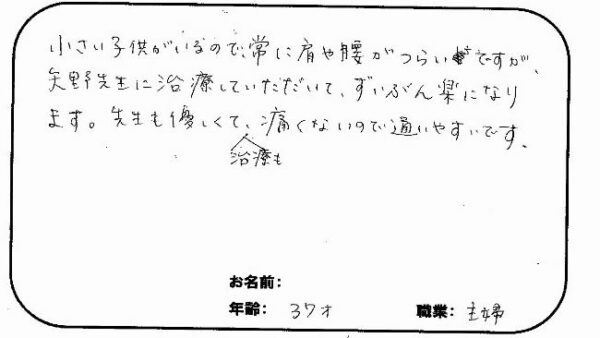 小さい子供がいるので、常に肩や腰がつらいですが、
矢野先生に治療していただいて、ずいぶん楽になり
ます。先生も優しくて、治療も痛くないので通いやすいです。
お名前:
年齢: 37才
職業: 主婦